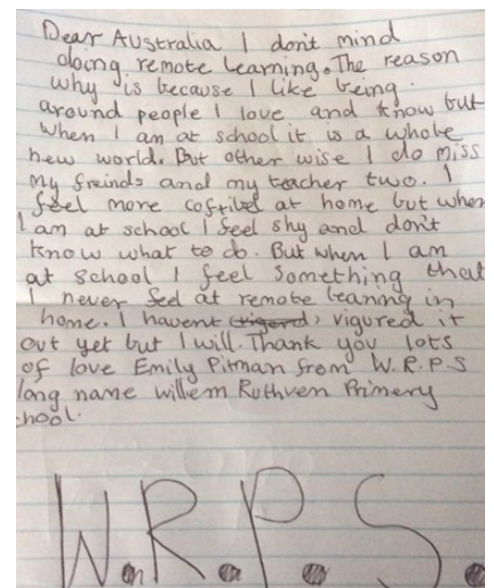 Dear Australia I don't mind
doing remote learning. The reason
why is because I like being
around people I love and know but
when I am at school it is a whole
new world. But other wise I do miss
my freinds and my teacher two. I
feel more at home but when
I am at school I feel shy and don't
know what to do. But when I am
at school I feel something that
I never feel at remote leaning in
home. I havent vigured it
out yet but I will. Thank you lots
of love Emily Pitman from W.R.P.S
long name willem Ruthven Primery
hool.
W.R.P.S.